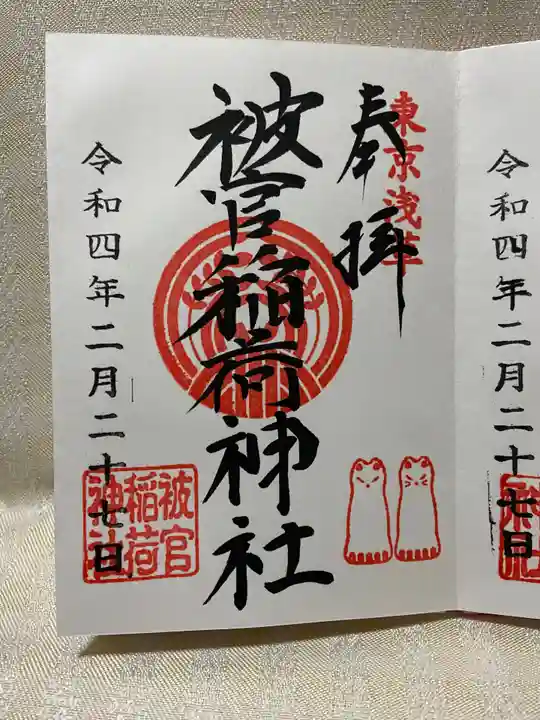 東京浅草
奉拝
被官稲荷神社
令和四年二月二十七日
被官
稲荷
神社
令和四年二月二十七日